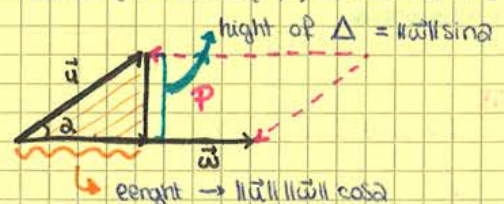 hight of Δ = ‖w⃗‖ sinα
u⃗
P
α
w⃗
eenght → ‖u⃗‖ ‖w⃗‖ cosα